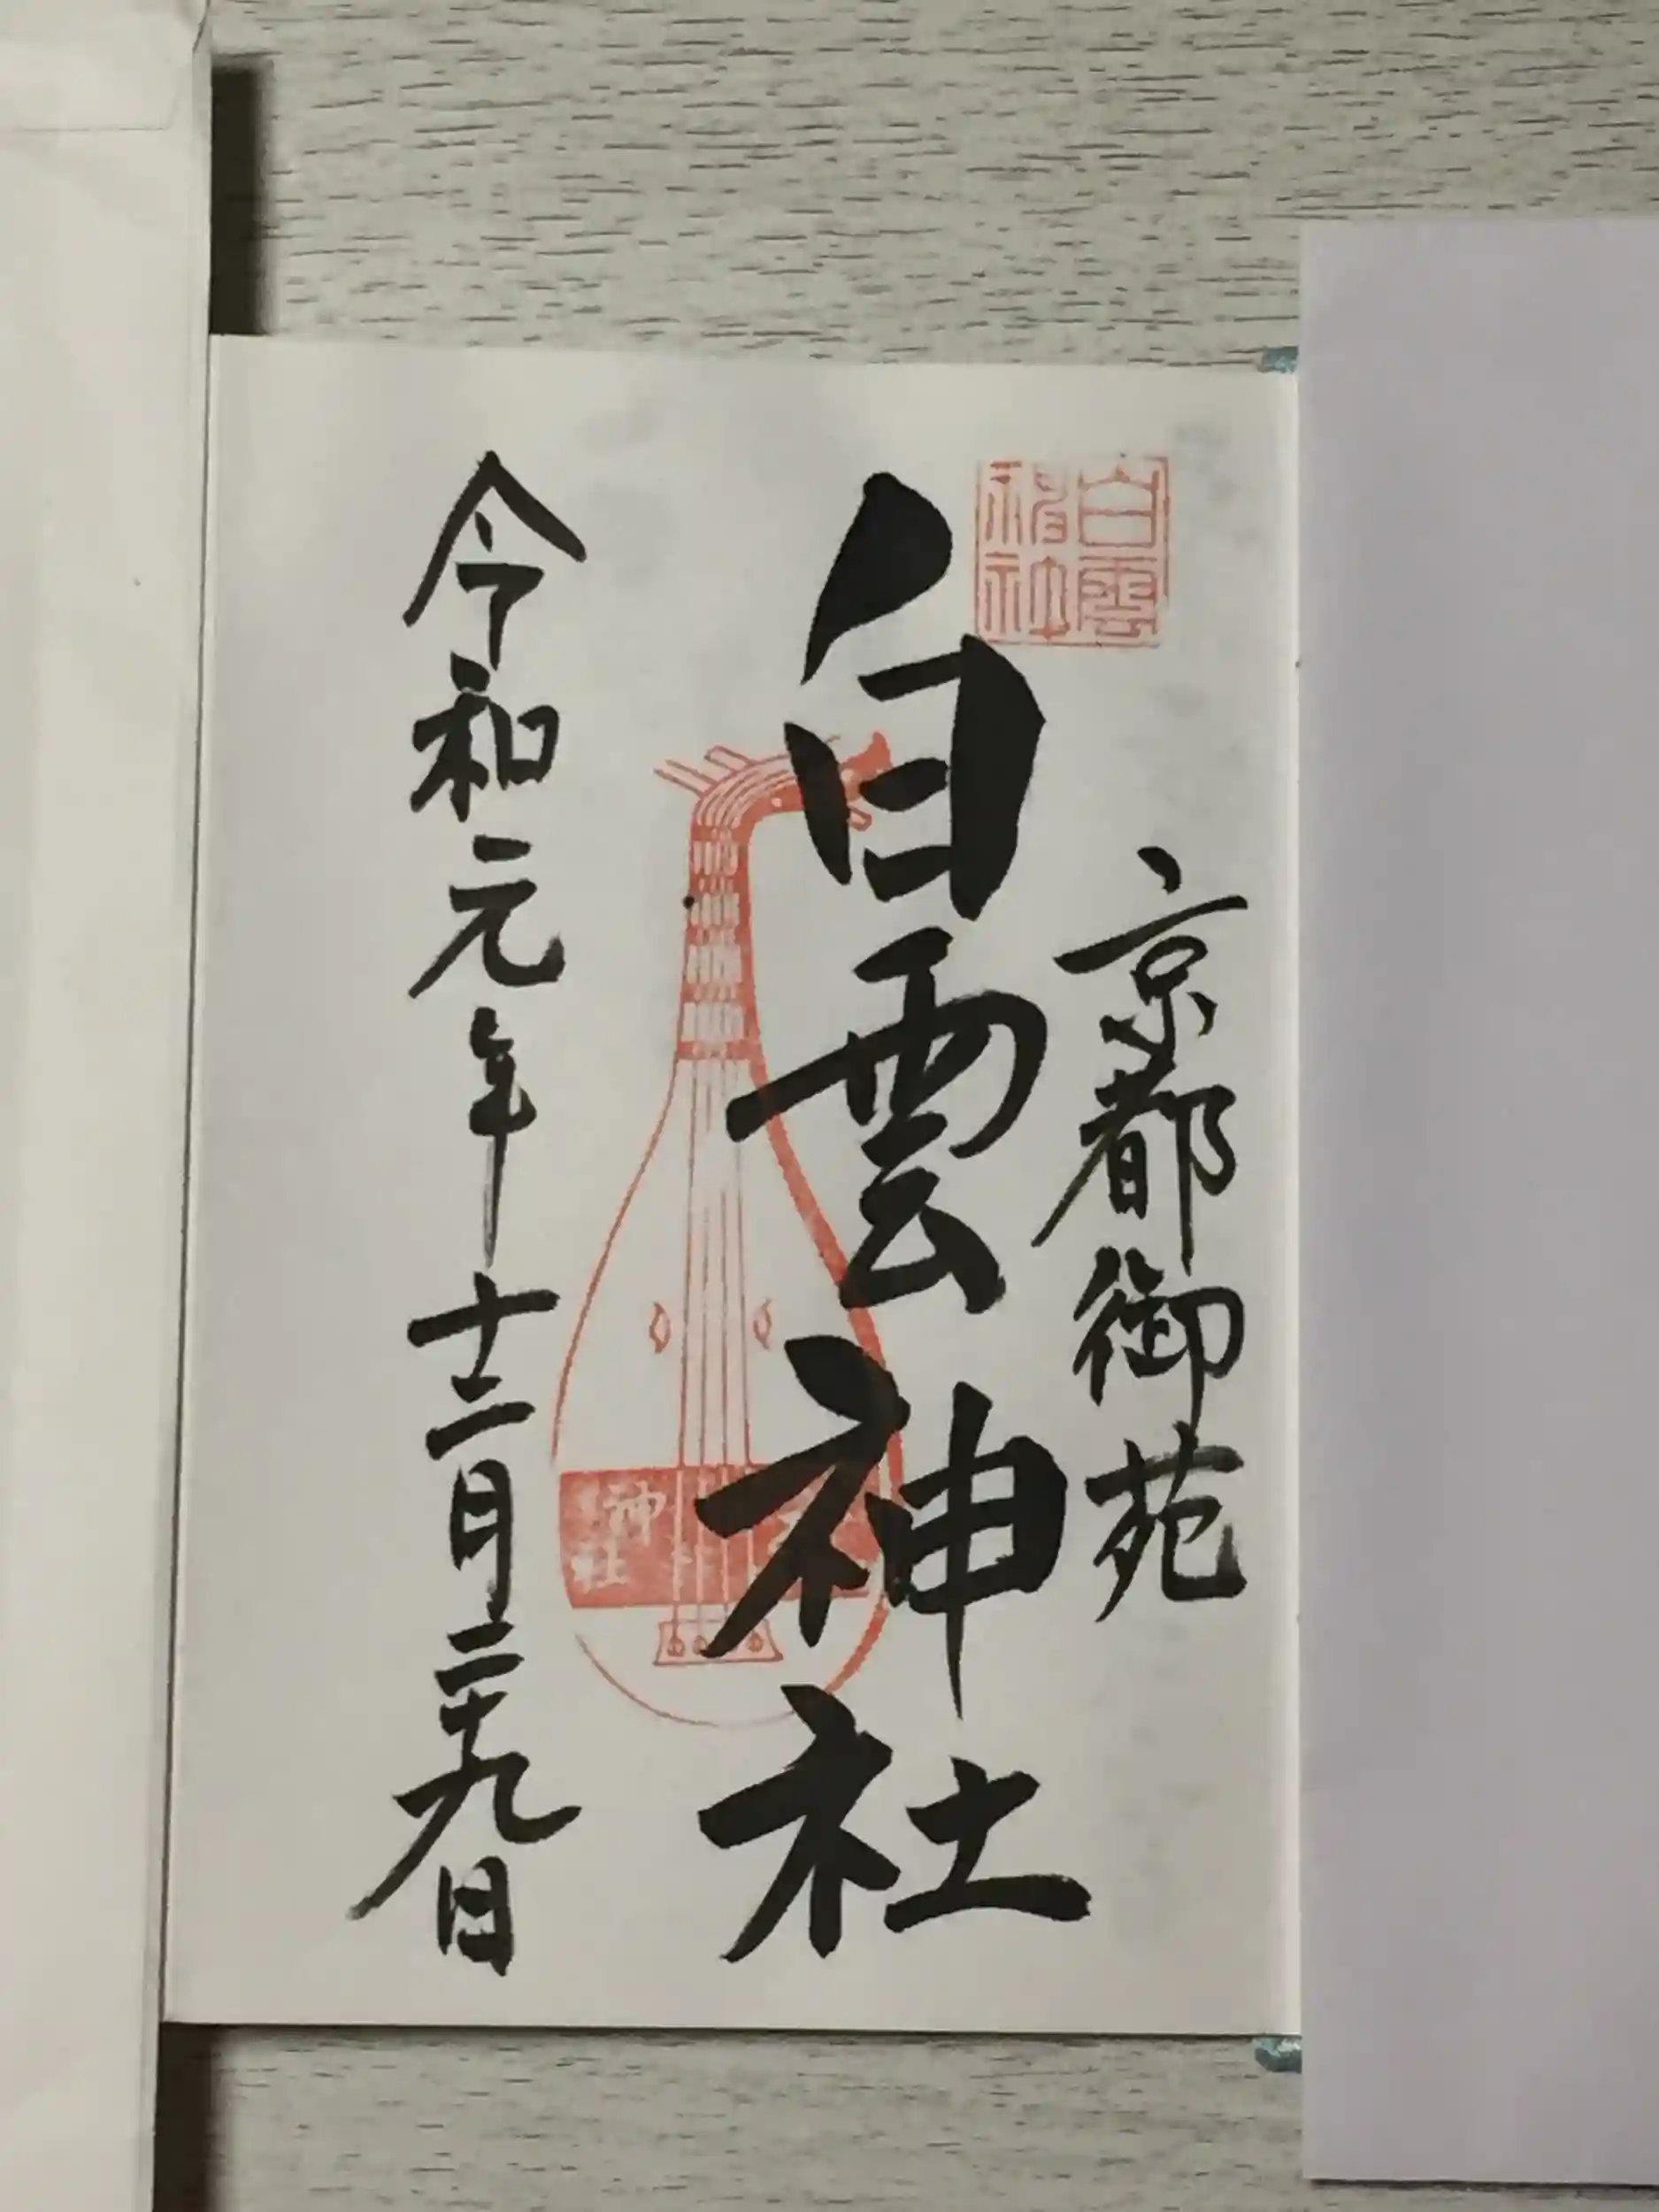 京都御苑
白雲
神社
白雲神社
神社
令和元年十二月二十九日